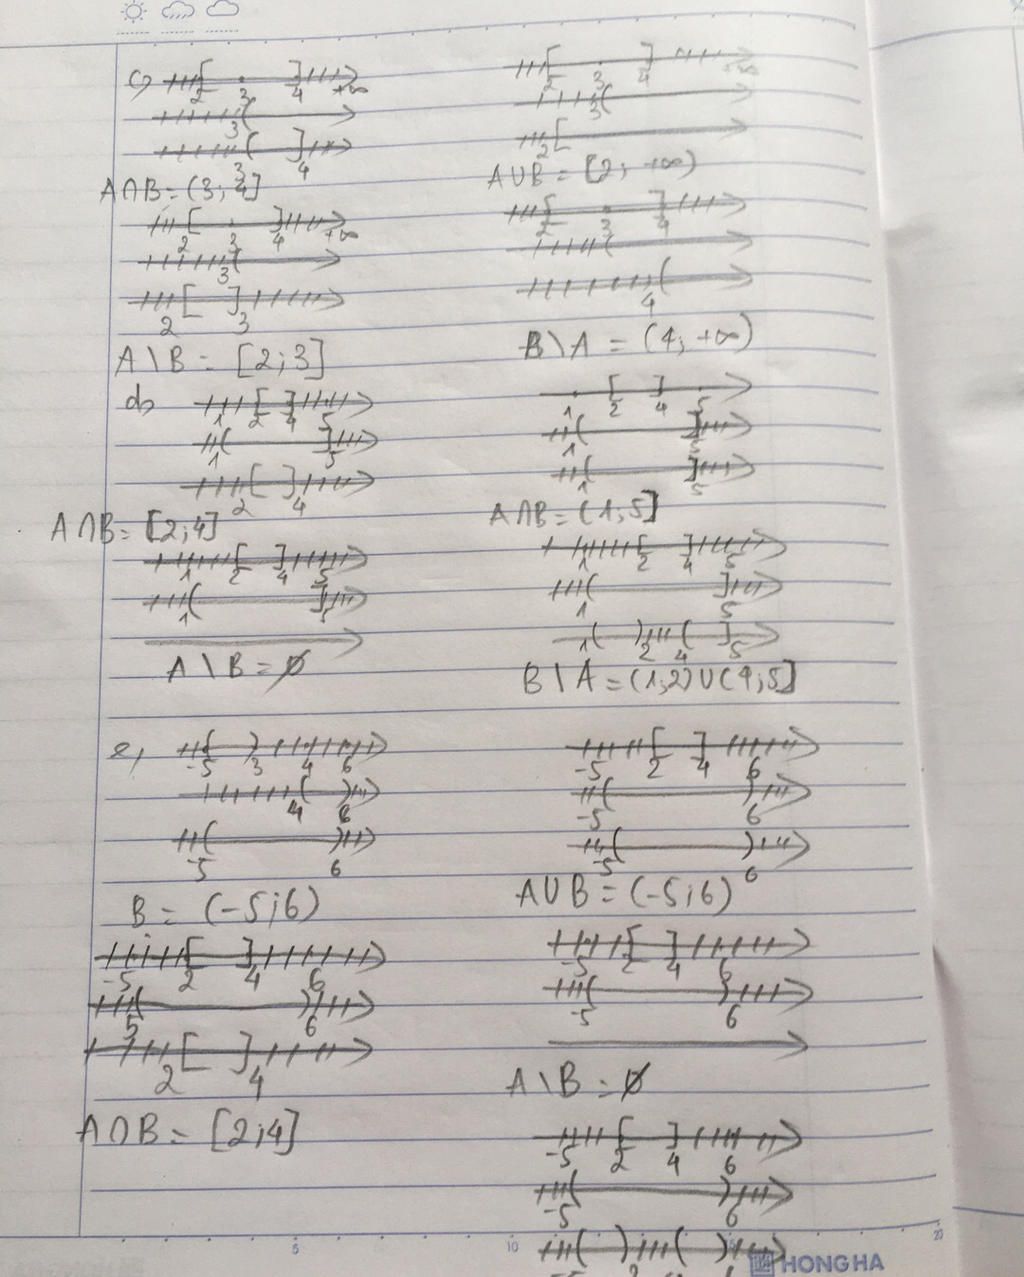 c,
2 3 4 +∞
3
3 4
A∩B = (3; 4]
2 3 4 +∞
3
2 3
A\B = [2;3]
2 3 4 +∞
3
2
A∪B = [2; +∞)
2 3 4
4
B\A = (4; +∞)
d,
1 2 4 5
1 5
2 4
A∩B = [2;4]
1 2 4 5
1 5
A\B = ∅
1 2 4 5
1 5
1 5
A∩B = (1;5]
1 2 4 5
1 5
1 2 4 5
B\A = (1;2)∪(4;5]
e,
-5 3 4 6
4 6
-5 6
B = (-5;6)
-5 2 4 6
5 6
2 4
A∩B = [2;4]
-5 2 4 6
-5 6
-5 6
A∪B = (-5;6)
-5 2 4 6
-5 6
A\B = ∅
-5 2 4 6
-5 6
5 10 15 20
HONG HA